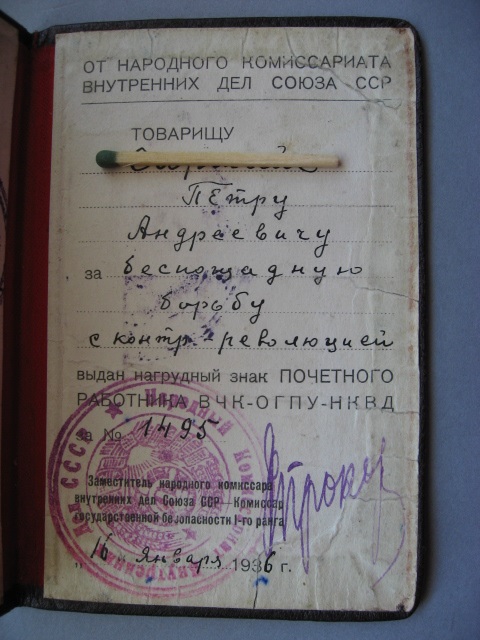 ОТ НАРОДНОГО КОМИССАРИАТА
ВНУТРЕННИХ ДЕЛ СОЮЗА ССР
ТОВАРИЩУ
Петру
Андреевичу
за беспощадную
борьбу
с контр-революцией
выдан нагрудный знак ПОЧЕТНОГО
РАБОТНИКА ВЧК-ОГПУ-НКВД
за № 1495
Заместитель народного комиссара
внутренних дел Союза ССР—Комиссар
государственной безопасности I-го ранга
"16" января 1936 г.
Народный Комиссариат Внутренних Дел СССР